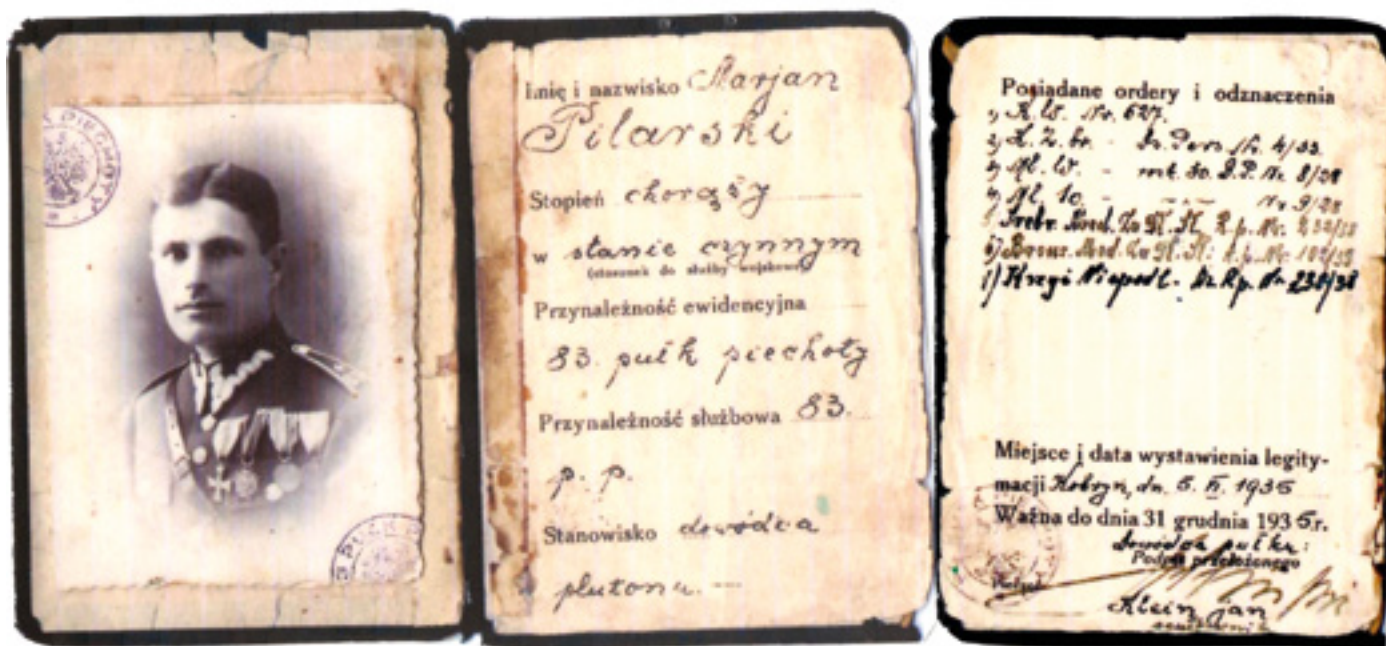 PIECHOTY
PUŁK
Imię i nazwisko Marjan
Pilarski
Stopień chorąży
w stanie czynnym
(stosunek do służby wojskowej)
Przynależność ewidencyjna
83. pułk piechoty
Przynależność służbowa 83.
p. p.
Stanowisko dowódca
plutonu. —
Posiadane ordery i odznaczenia
1) K.W. Nr. 627.
2) K.Z. br. - Dz. Pers. Nr. 4/33
3) Md. W. - rozk. 30. D.P. Nr 8/28
4) Md. 10 - - " - Nr 9/28
5. Srebr. Med. Za Dł. Sł. R.p. Nr. 232/38
6) Bronz. Med. Za Dł. Sł. R.p. Nr. 102/38
7) Krzyż Niepodl. Dz. R.p. Nr 238/38
Miejsce i data wystawienia legity-
macji Kobryń, dn. 5. II. 1935
Ważna do dnia 31 grudnia 1935 r.
Dowódca pułku:
Podpis przełożonego
Klein Jan